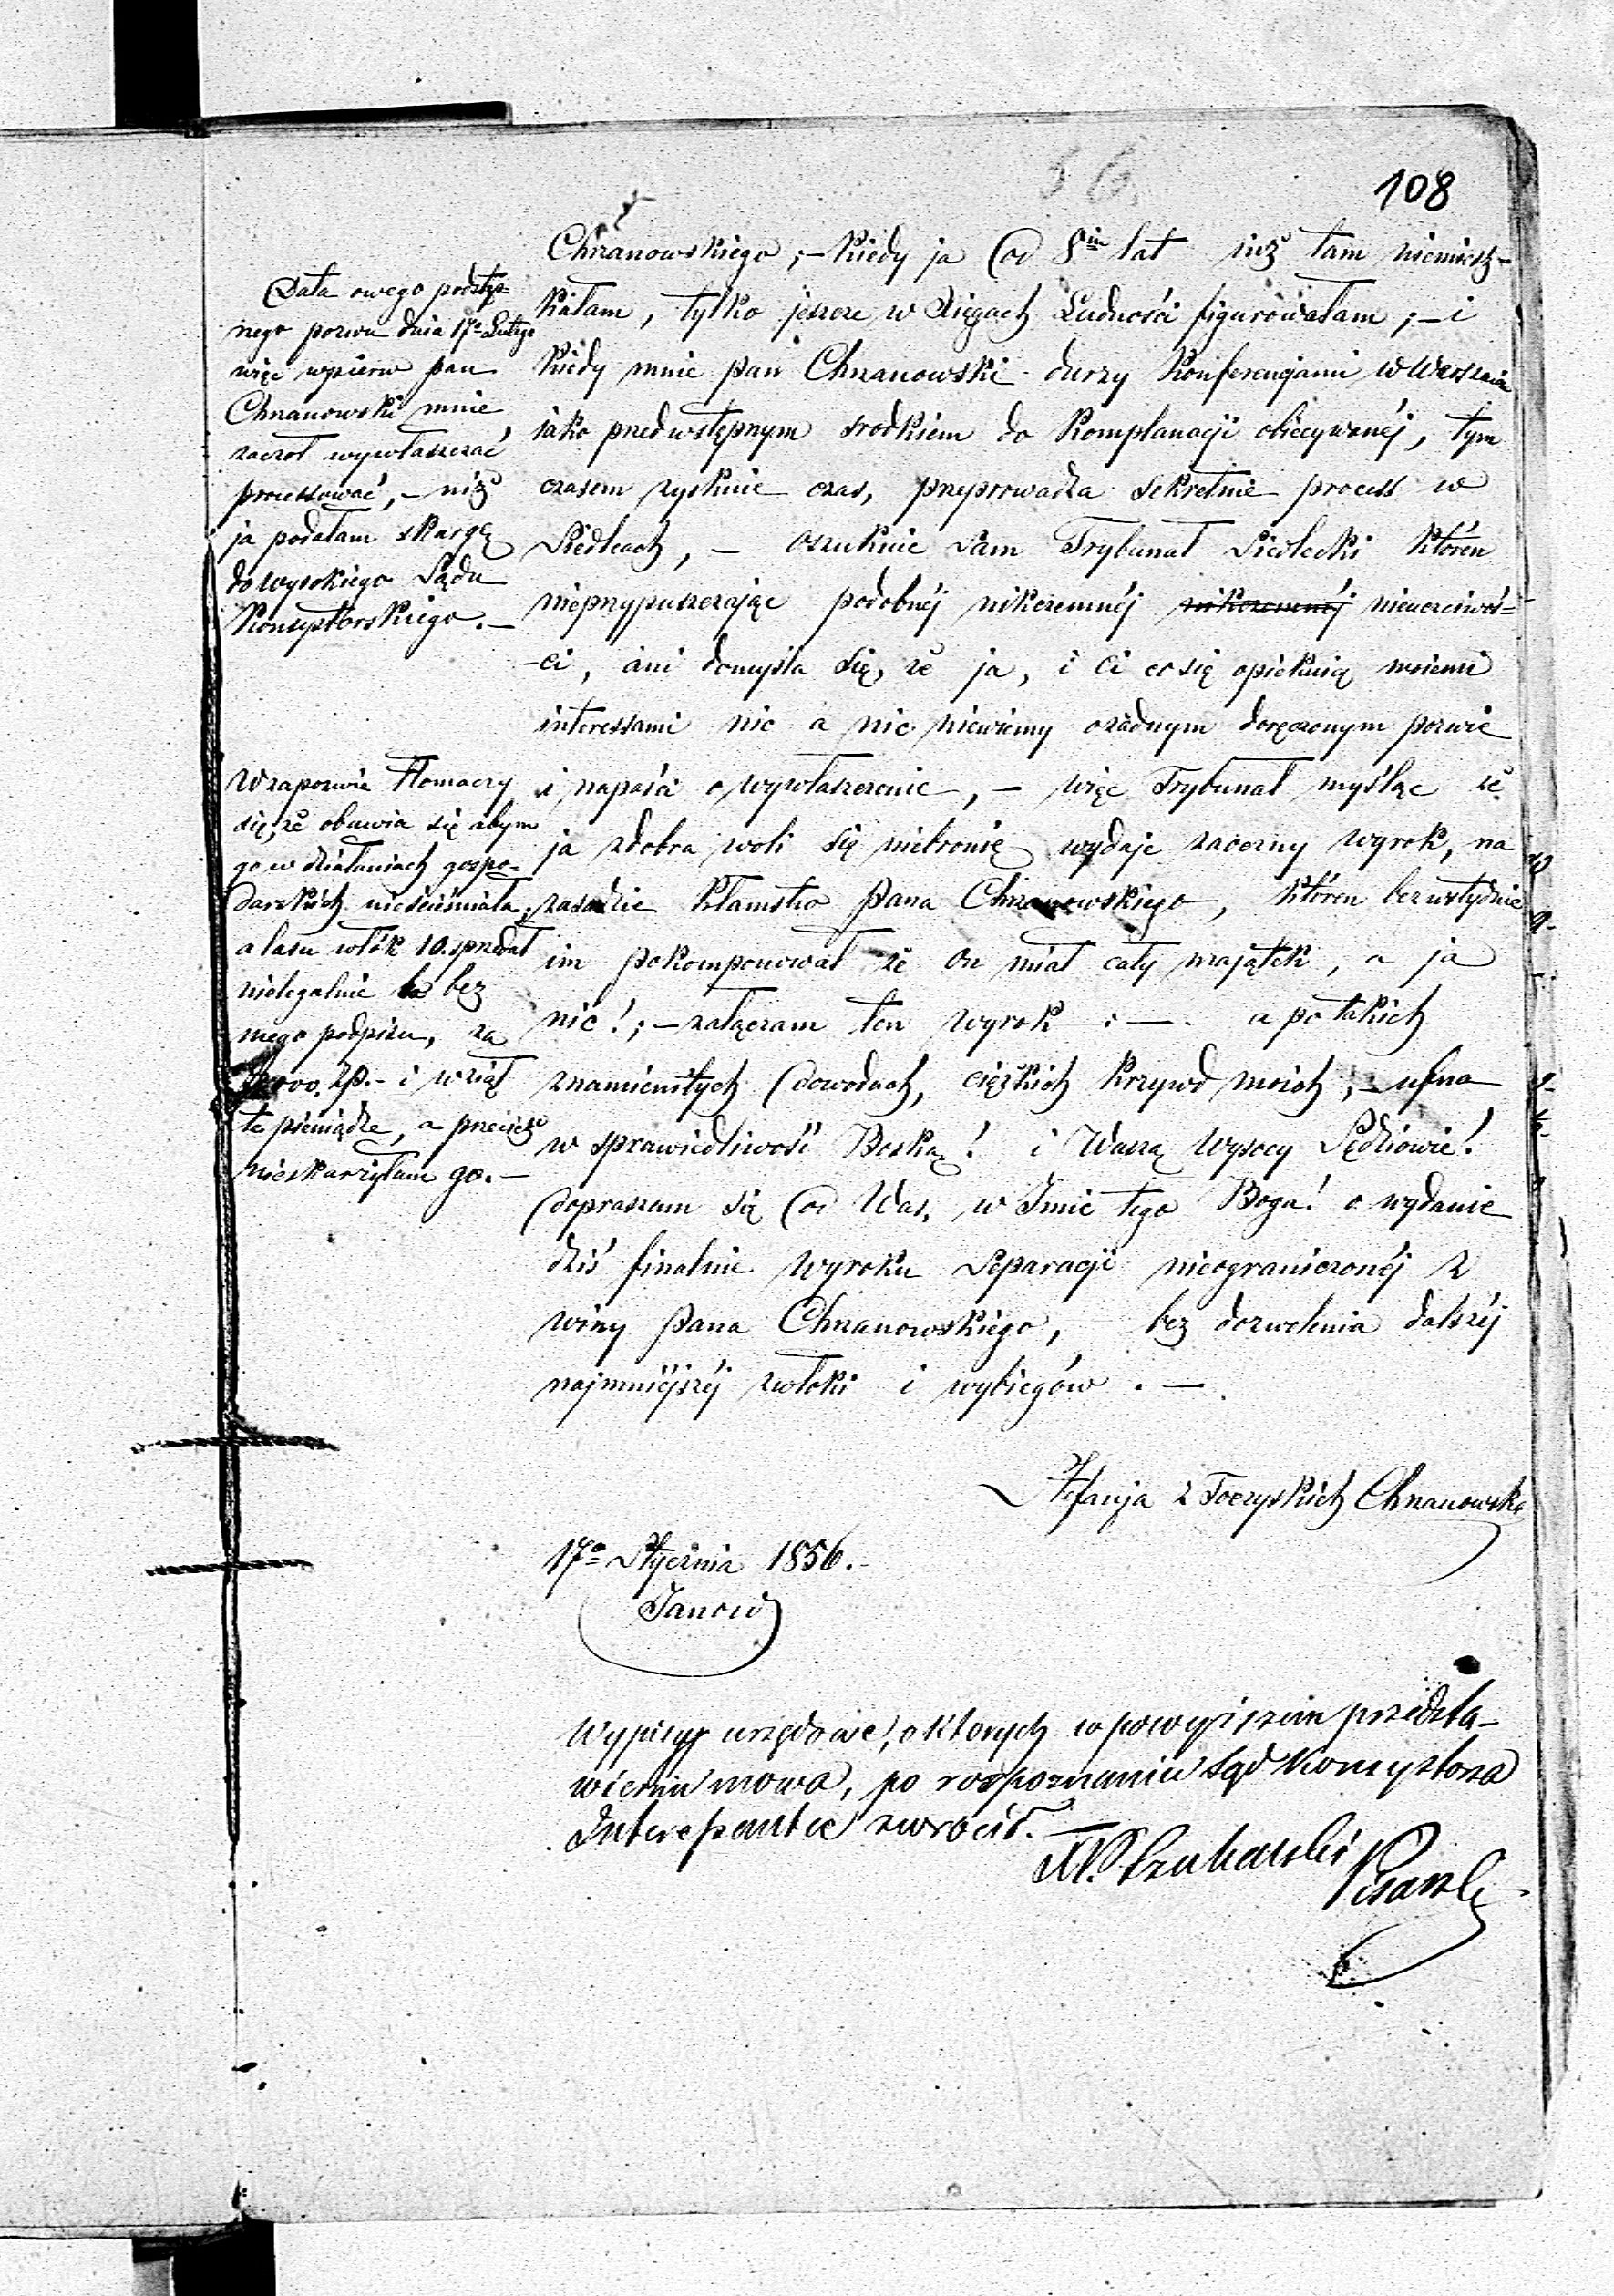 108
Chrzanowskiego ; – kiedy ja od 8iu lat już tam niemiesz-
kałam, tylko jeszcze w Xięgach Ludności figurowałam ; – i
kiedy mnie pan Chrzanowski durzy Konferencjami w Warszawie
jako przedwstępnym środkiem do Komplanacji obiecywanéj, tym
czasem zyskuie czas, przeprowadza sekretnie process w
Siedlcach, – oszukuie sam Trybunał Siedlecki któren
nieprzypuszczając podobnéj nikczemnéj nikczemnéj nieuczciwoś=
-ci, ani domyśla się, że ja, i ci co się opiekuią moiemi
interessami nic a nic niewiemy o żadnym doręczonym pozwie
i napaści o wywłaszczenie, – więc Trybunał myśląc że
ja z dobra woli się niebronię wydaje zaoczny wyrok, na
zasadzie kłamstw pana Chrzanowskiego, któren bezwstydnie
im pokomponował że On miał cały majątek, a ja
nic! ; – załączam ten wyrok : – . a po takich
znamienitych dowodach, ciężkich krzywd moich ; – ufna
w sprawiedliwość Boską! i Waszą Wysocy Sędziowie!
dopraszam się od Was, w Imie tego Boga! o wydanie
dziś finalnie wyroku Separacji nieograniczonéj z
winy pana Chrzanowskiego, bez dozwolenia dalszéj
najmniéjszéj zwłoki i wybiegów . –
Stefanja z Toczyskich Chrzanowska
17o Stycznia 1856. –
Janow
Data owego podstęp=
nego pozwu dnia 17o Lutego
więc wpierw pan
Chrzanowski mnie
zaczoł wywłaszczać,
processować, – niż
ja podałam skargę
do wysokiego Sądu
Konsystorskiego. –
W zapozwie tłomaczy
się, że obawia się abym
go w działaniach gospo=
darskich nieścieśniała,
a lasu włók 10. sprzedał
nielegalnie bo bez
mego podpisu, za
złp. – i wziął
te pieniądze, a przecież
nieskarżyłam go. –
Wypisy urzędowe, o których w powyższem przedsta-
wieniu mowa, po rozpoznaniu Sąd Konsystorza
Interessantce zwrócił. –
Pisarz